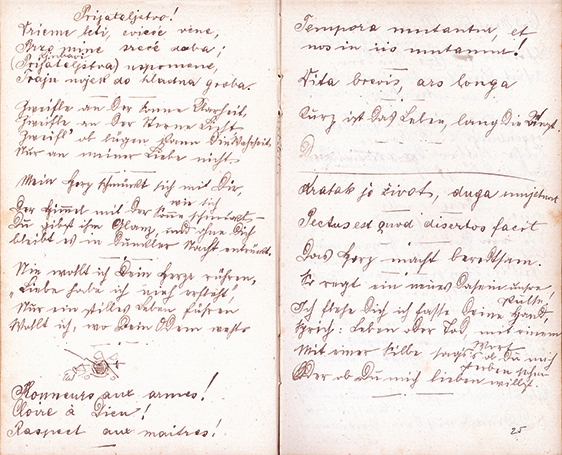 Prijateljstvo!
Vrieme leti, cvieće vene,
Brzo mine sreće doba;
ljubavi
(Prijateljstva) uspomene,
Traju uvjek do hladna groba.
Zweifle an der Sonne Klarheit,
Zweifle an der Sterne Licht
Zweifl' ob lügen kann die Wahrheit,
Nur an meiner Liebe nicht.
Mein Herz schmückt sich mit Dir,
wie sich
Der Himmel mit der Sonne schmückt –
Du gibst ihm Glanz, und ohne Dich
bleibt es in dunkler Nacht entrückt.
Nie wollt ich Dein Herze rühren,
„Liebe habe ich nich erfleht",
Nur ein stilles Leben führen
Wollt ich, wo Dein Odem weht
Honneurs aux armes!
Gloire à Dieu!
Respect aux maitres!
Tempora mutantur, et
nos in iis mutamur!
Vita brevis, ars longa
Kurz ist das Leben, lang die Kunst.
D
Kratak je život, duga umjetnost
Pectus est quod disertos facit
Das Herz macht beredtsam.
Es regt ein neues Dasein unsre,
Ich flehe Dich ich fasse Deine Hand
Sprich: Leben oder Tod, mit einem
Wort
Mit einer Silbe sag's ob Du mich
Oder ob Du mich lieben willst.
25